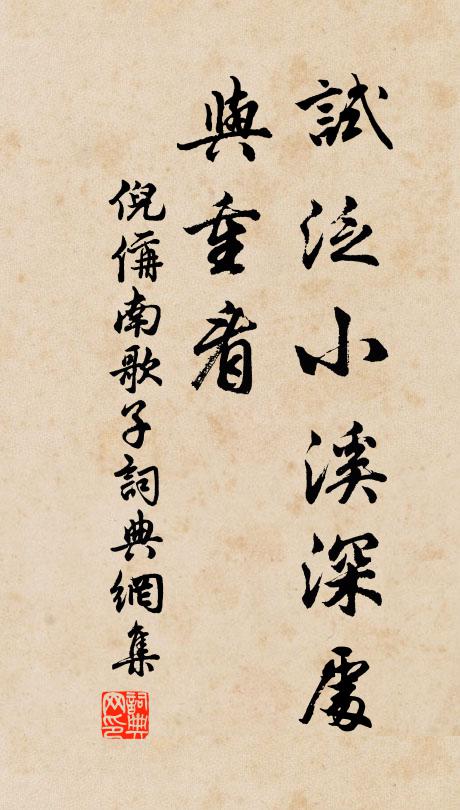 試泛小溪深處
與重看
倪偁南歌子詞典網集
詞典网印